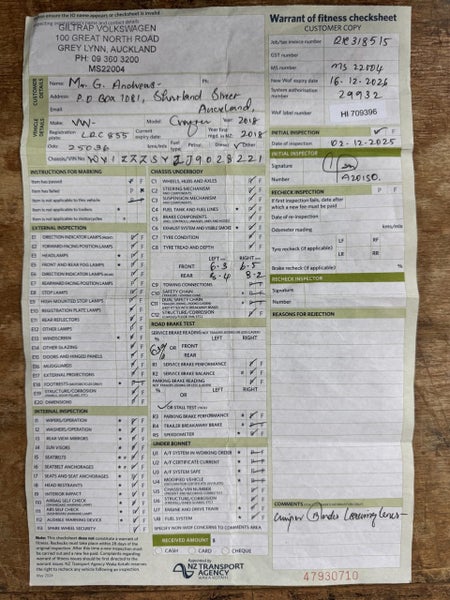 Please ensure the IO name appears or checksheet is invalid
GILTRAP VOLKSWAGEN
100 GREAT NORTH ROAD
GREY LYNN, AUCKLAND
PH: 09 360 3200
MS22004
Warrant of fitness checksheet
CUSTOMER COPY
Job/tax invoice number
GST number
MS number MS 22004
New WoF expiry date 16.12.2026
System authorisation number 29932
WoF label number HI 709396
CUSTOMER DETAILS
Name: Mr. G. Andrews - Ph:
Address: P.O BOX 7081,
Email Auckland,
VEHICLE DETAILS
Make: VW- Year 2018
Registration plate: Current expiry date: Year first regd. in NZ: 2018
Odo: 25036 kms/mls Fuel type: Petrol Diesel Other
Chassis/VIN No
INITIAL INSPECTION P F
Date of inspection 02-12-2025
INITIAL INSPECTOR
Signature
Number
RECHECK INSPECTION P F
If first inspection fails, date after which a new fee must be paid
Date of re-inspection
Odometer reading kms/mls
Tyre recheck (if applicable) LF RF
LR RR
Brake recheck (if applicable) %
RECHECK INSPECTOR
Signature
Number
REASONS FOR REJECTION
INSTRUCTIONS FOR MARKING
Item has passed
Item has failed
Item is not applicable to this vehicle
Item is not applicable to trailers
Item is not applicable to motorcycles
EXTERNAL INSPECTION
E1 DIRECTION INDICATOR LAMPS (FRONT)
E2 FORWARD-FACING POSITION LAMPS
E3 HEADLAMPS
E4 FRONT AND REAR FOG LAMPS
E6 DIRECTION INDICATOR LAMPS (REAR)
E7 REARWARD-FACING POSITION LAMPS
E8 STOP LAMPS
E9 HIGH-MOUNTED STOP LAMPS
E10 REGISTRATION PLATE LAMPS
E11 REAR REFLECTORS
E12 OTHER LAMPS
E13 WINDSCREEN
E14 OTHER GLAZING
E15 DOORS AND HINGED PANELS
E16 MUDGUARDS
E17 EXTERNAL PROJECTIONS
E18 FOOTRESTS (MOTORCYCLES ONLY)
E19 STRUCTURE/CORROSION
E20 DIMENSIONS
INTERNAL INSPECTION
I1 WIPERS/OPERATION
I2 WASHERS/OPERATION
I3 REAR VIEW MIRRORS
I4 SUN VISORS
I5 SEATBELTS
I6 SEATBELT ANCHORAGES
I7 SEATS AND SEAT ANCHORAGES
I8 HEAD RESTRAINTS
I9 INTERIOR IMPACT
I10 AIRBAG SELF CHECK
I11 ABS SELF CHECK
I12 AUDIBLE WARNING DEVICE
I14 SPARE WHEEL SECURITY
CHASSIS UNDERBODY
C1 WHEELS, HUBS AND AXLES
C2 STEERING MECHANISM
C3 SUSPENSION MECHANISM
C4 FUEL TANK AND FUEL LINES
C5 BRAKE COMPONENTS,
C6 EXHAUST SYSTEM AND VISIBLE SMOKE
C7 TYRE CONDITION
C8 TYRE TREAD AND DEPTH
LEFT RIGHT
FRONT 6.3 6.5
REAR 8.4 8.2
C9 TOWING CONNECTIONS
C10 SAFETY CHAIN
C11 DUAL SAFETY CHAIN
C12 STRUCTURE/CORROSION
ROAD BRAKE TEST
LEFT RIGHT
% OR FRONT
REAR
R1 SERVICE BRAKE PERFORMANCE
R2 SERVICE BRAKE BALANCE
PARKING BRAKE READING
LEFT RIGHT
% OR
OR STALL TEST (TICK)
R3 PARKING BRAKE PERFORMANCE
R4 TRAILER BREAKAWAY BRAKE
R5 SPEEDOMETER
UNDER BONNET
U1 A/F SYSTEM IN WORKING ORDER
U2 A/F CERTIFICATE CURRENT
U3 A/F SYSTEM SAFE
U4 MODIFIED VEHICLE
U5 CHASSIS/VIN NUMBER
U6 STRUCTURE/CORROSION
U7 ENGINE AND DRIVE TRAIN
U8 FUEL SYSTEM
SPECIFY NON WOF CONCERNS TO COMMENTS AREA
COMMENTS
RECEIVED AMOUNT $
CASH CARD CHEQUE
Note: This checksheet does not constitute a warrant of fitness. Rechecks must take place within 28 days of the original inspection. After this time a new inspection must be carried out and a new fee paid. Complaints regarding warrant of fitness issues should be first directed to the issuing agent. NZ Transport Agency Waka Kotahi reserves the right to recheck any vehicle following an inspection.
Approved by
NZ TRANSPORT AGENCY
WAKA KOTAHI
47930710